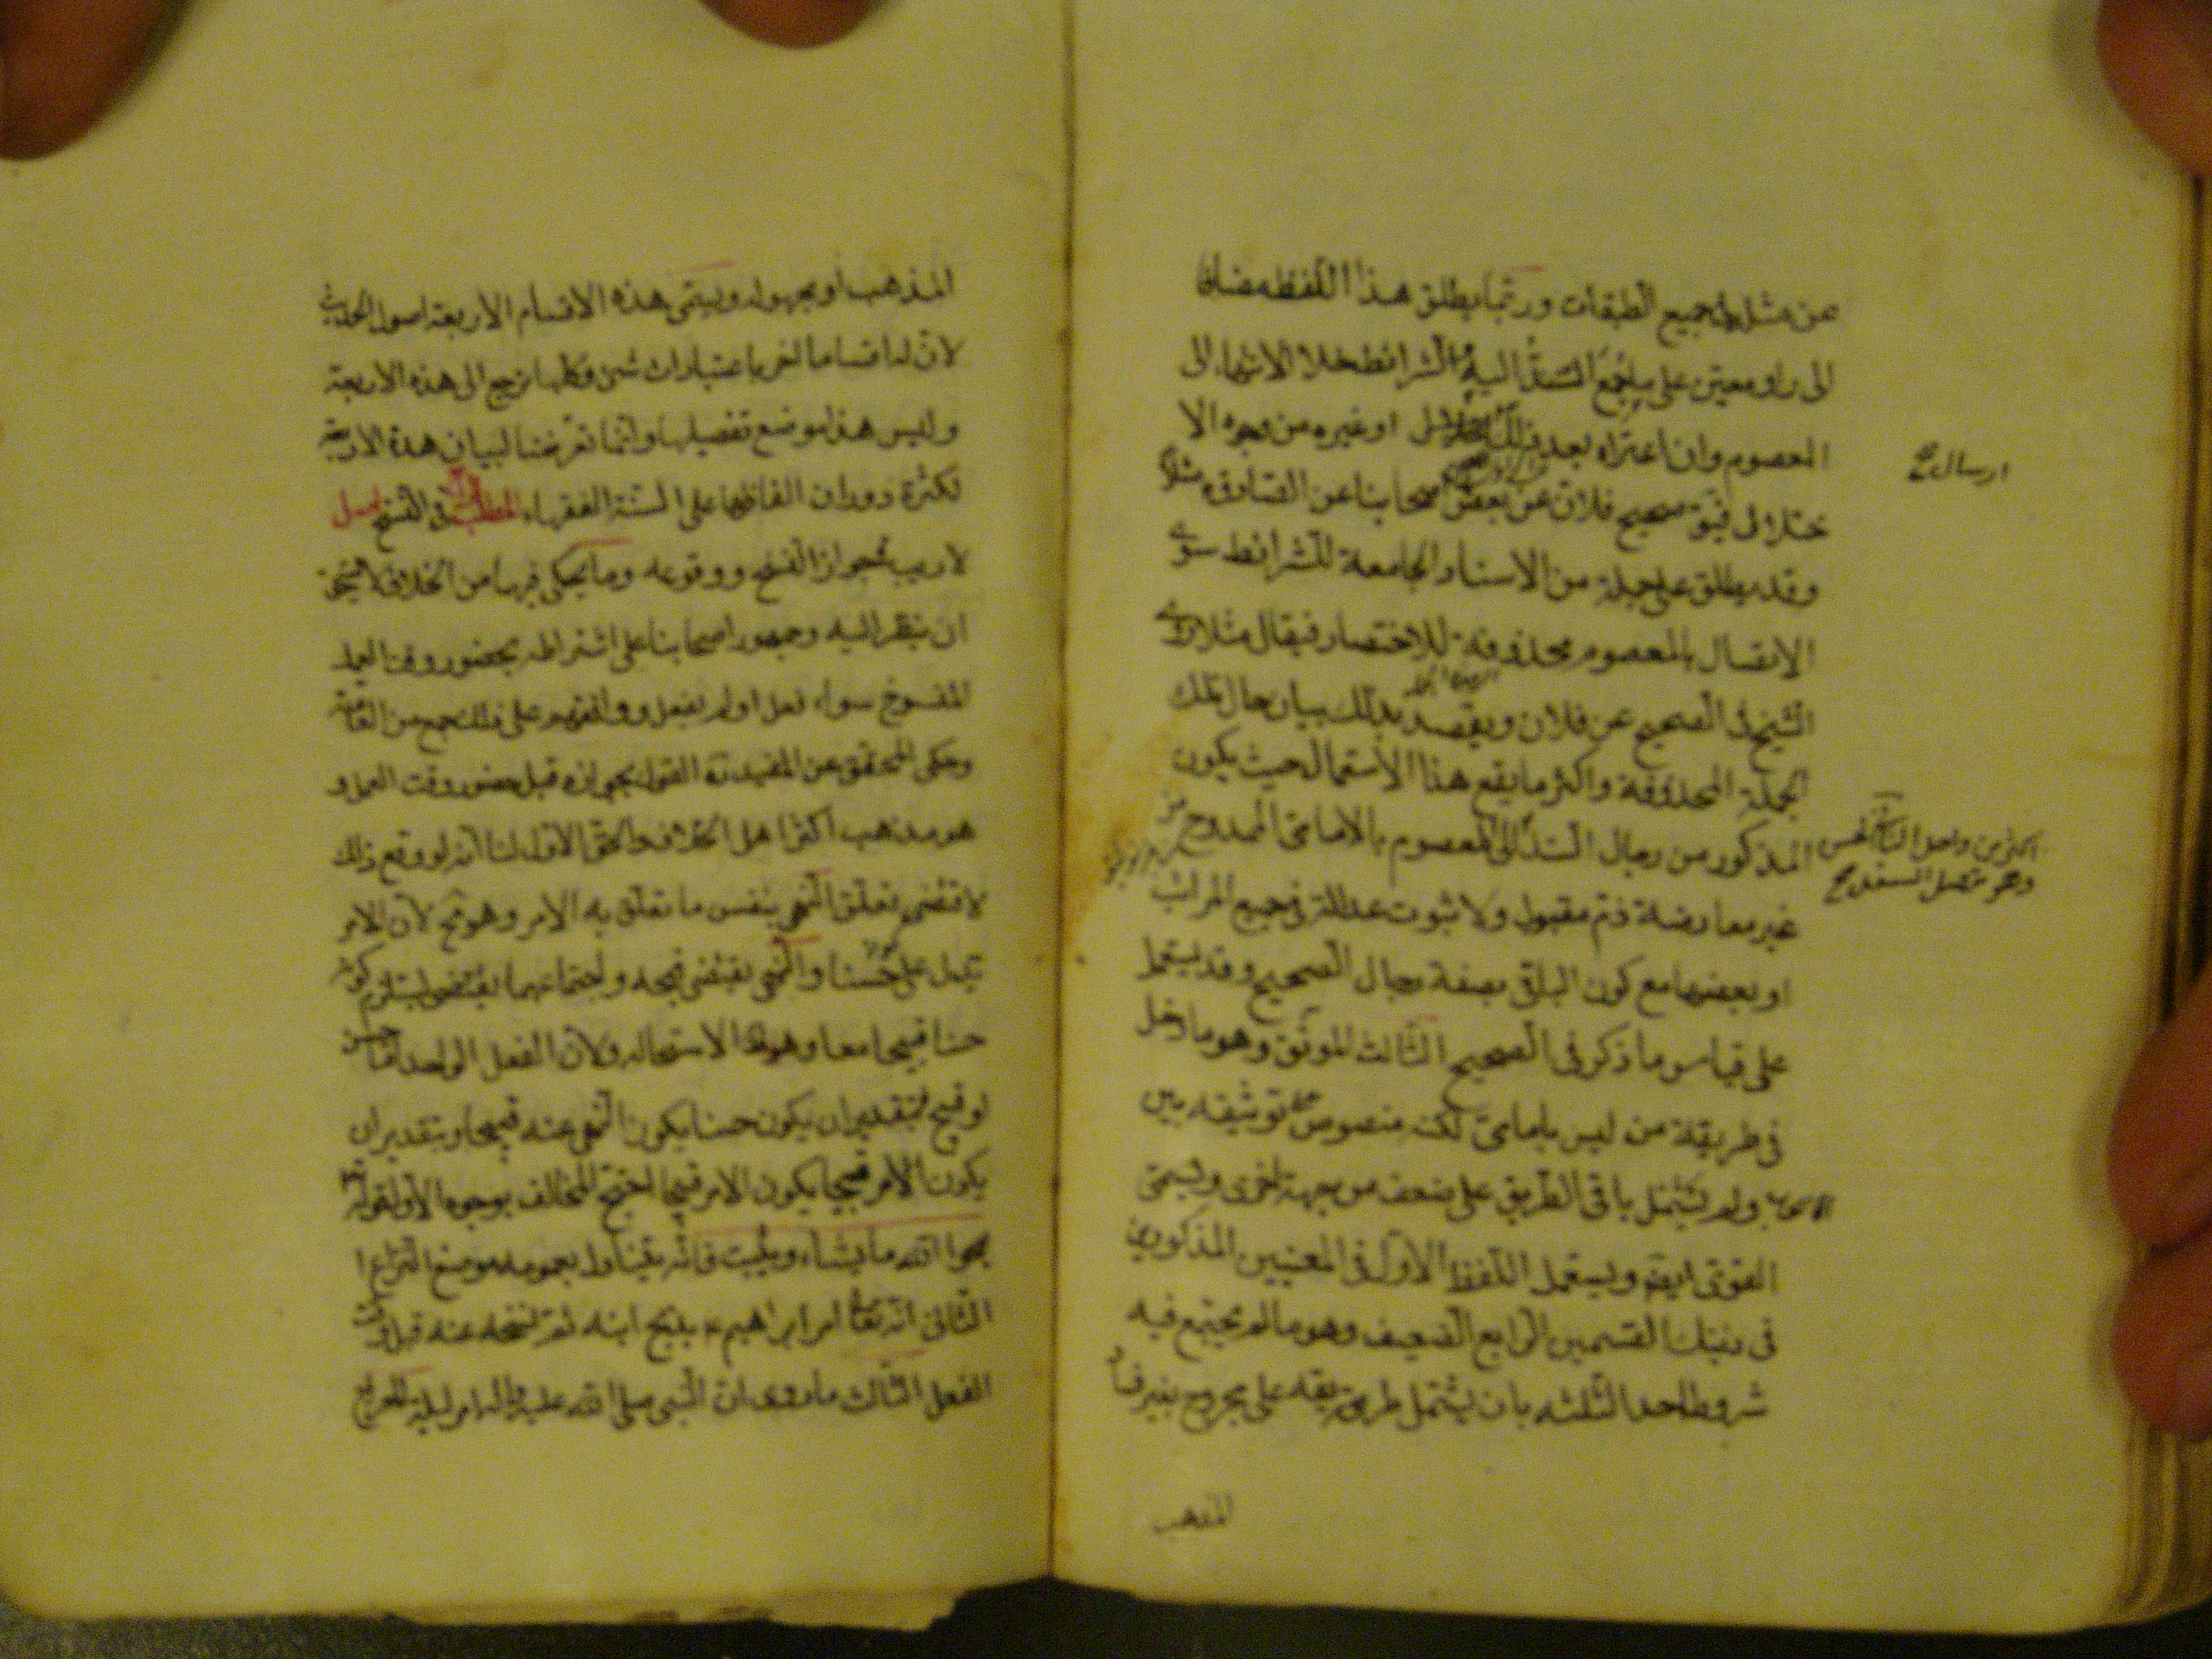 عن مثله فى جميع الطبقات وربّما يطلق هذا اللّفظ مضافا
الى راو معيّن على ما جمع السّند اليه الشرائط خلا الانتهاء الى
المعصوم وان اعتراه بعد ذلك ارسال او غيره من وجوه الا
ختلال فيق صحيح فلان عن بعض اصحابنا عن الصّادق ع مثلا
وقد يطلق على جملة من الاسناد الجامعة للشرائط سوى
الاتصال بالمعصوم محذوفة للاختصار فيقال مثلا روى
الشّيخ فى الصّحيح عن فلان ويقصد بذلك بيان حال تلك
الجملة المحذوفة واكثر ما يقع هذا الاستعمال حيث يكون
المذكور من رجال السّند الى المعصوم بالامامىّ الممدوح من
غير معارضة ذمّ مقبول ولا ثبوت عدالة فى جميع المراتب
او بعضها مع كون الباقى بصفة رجال الصّحيح وقد يستعمل
على قياس ما ذكر فى الصّحيح الثّالث الموثّق وهو ما دخل
فى طريقه من ليس بامامىّ لكنّه منصوص على توثيقه بين
الاصحاب ولم يشتمل باقى الطّريق على ضعف من جهة اخرى ويسمّى
القوىّ ايضا ويستعمل اللّفظ الاوّل فى المعنيين المذكورين
فى ذينك القسمين الرّابع الضّعيف وهو ما لم يجتمع فيه
شروط احد الثّلثة بان يشتمل طريقه على مجروح بغير فساد
ارسال صح
وهو متّصل السّند صح
المذهب
المذهب او مجهول ويسمّى هذه الاقسام الاربعة اصول الحديث
لانّ له اقساما اخر باعتبارات شتى وكلّها ترجع الى هذه الاربعة
وليس هذا موضع تفصيلها وانّما تعرّضنا لبيان هذه الاربعة
لكثرة دوران الفاظها على السنة الفقهاء المطلب فى النّسخ اصل
لا ريب فى جواز النّسخ ووقوعه وما يحكى فيهما من الخلاف لا يستحقّ
ان ينظر اليه وجمهور اصحابنا على اشتراطه بحضور وقت العمل
المنسوخ سواء فعل او لم يفعل ووافقهم على ذلك جمع من العامّة
وحكى المحقّق عن المفيد ره القول بجوازه قبل حضور وقت العمل و
هو مذهب اكثر اهل الخلاف والحقّ الاوّل لنا انّه لو وقع ذلك
لاقتضى تعلّق النّهى بنفس ما تعلّق به الامر وهو مح لانّ الامر
تدلّ على حسنا والنّهى يقتضى قبحه واجتماعهما يقتضى يستلزم كونه
حسنا قبيحا معا وهو ظ الاستحاله ولانّ الفعل الواحد امّا حسن
او قبيح فبتقدير ان يكون حسنا يكون النّهى عنه قبيحا وبتقدير ان
يكون الامر قبيحا يكون الامر قبيحا احتجّ المخالف بوجوه الاوّل قوله تع
يمحوا الله ما يشاء ويثبت فانّه يتناول بعمومه موضع النّزاع
الثّانى انّه تعالى امر ابراهيم ع بذبح ابنه ثمّ نسخه عنه قبل وقت
الفعل الثّالث ما روى انّ النّبى صلى الله عليه واله امر ليلة المعراج